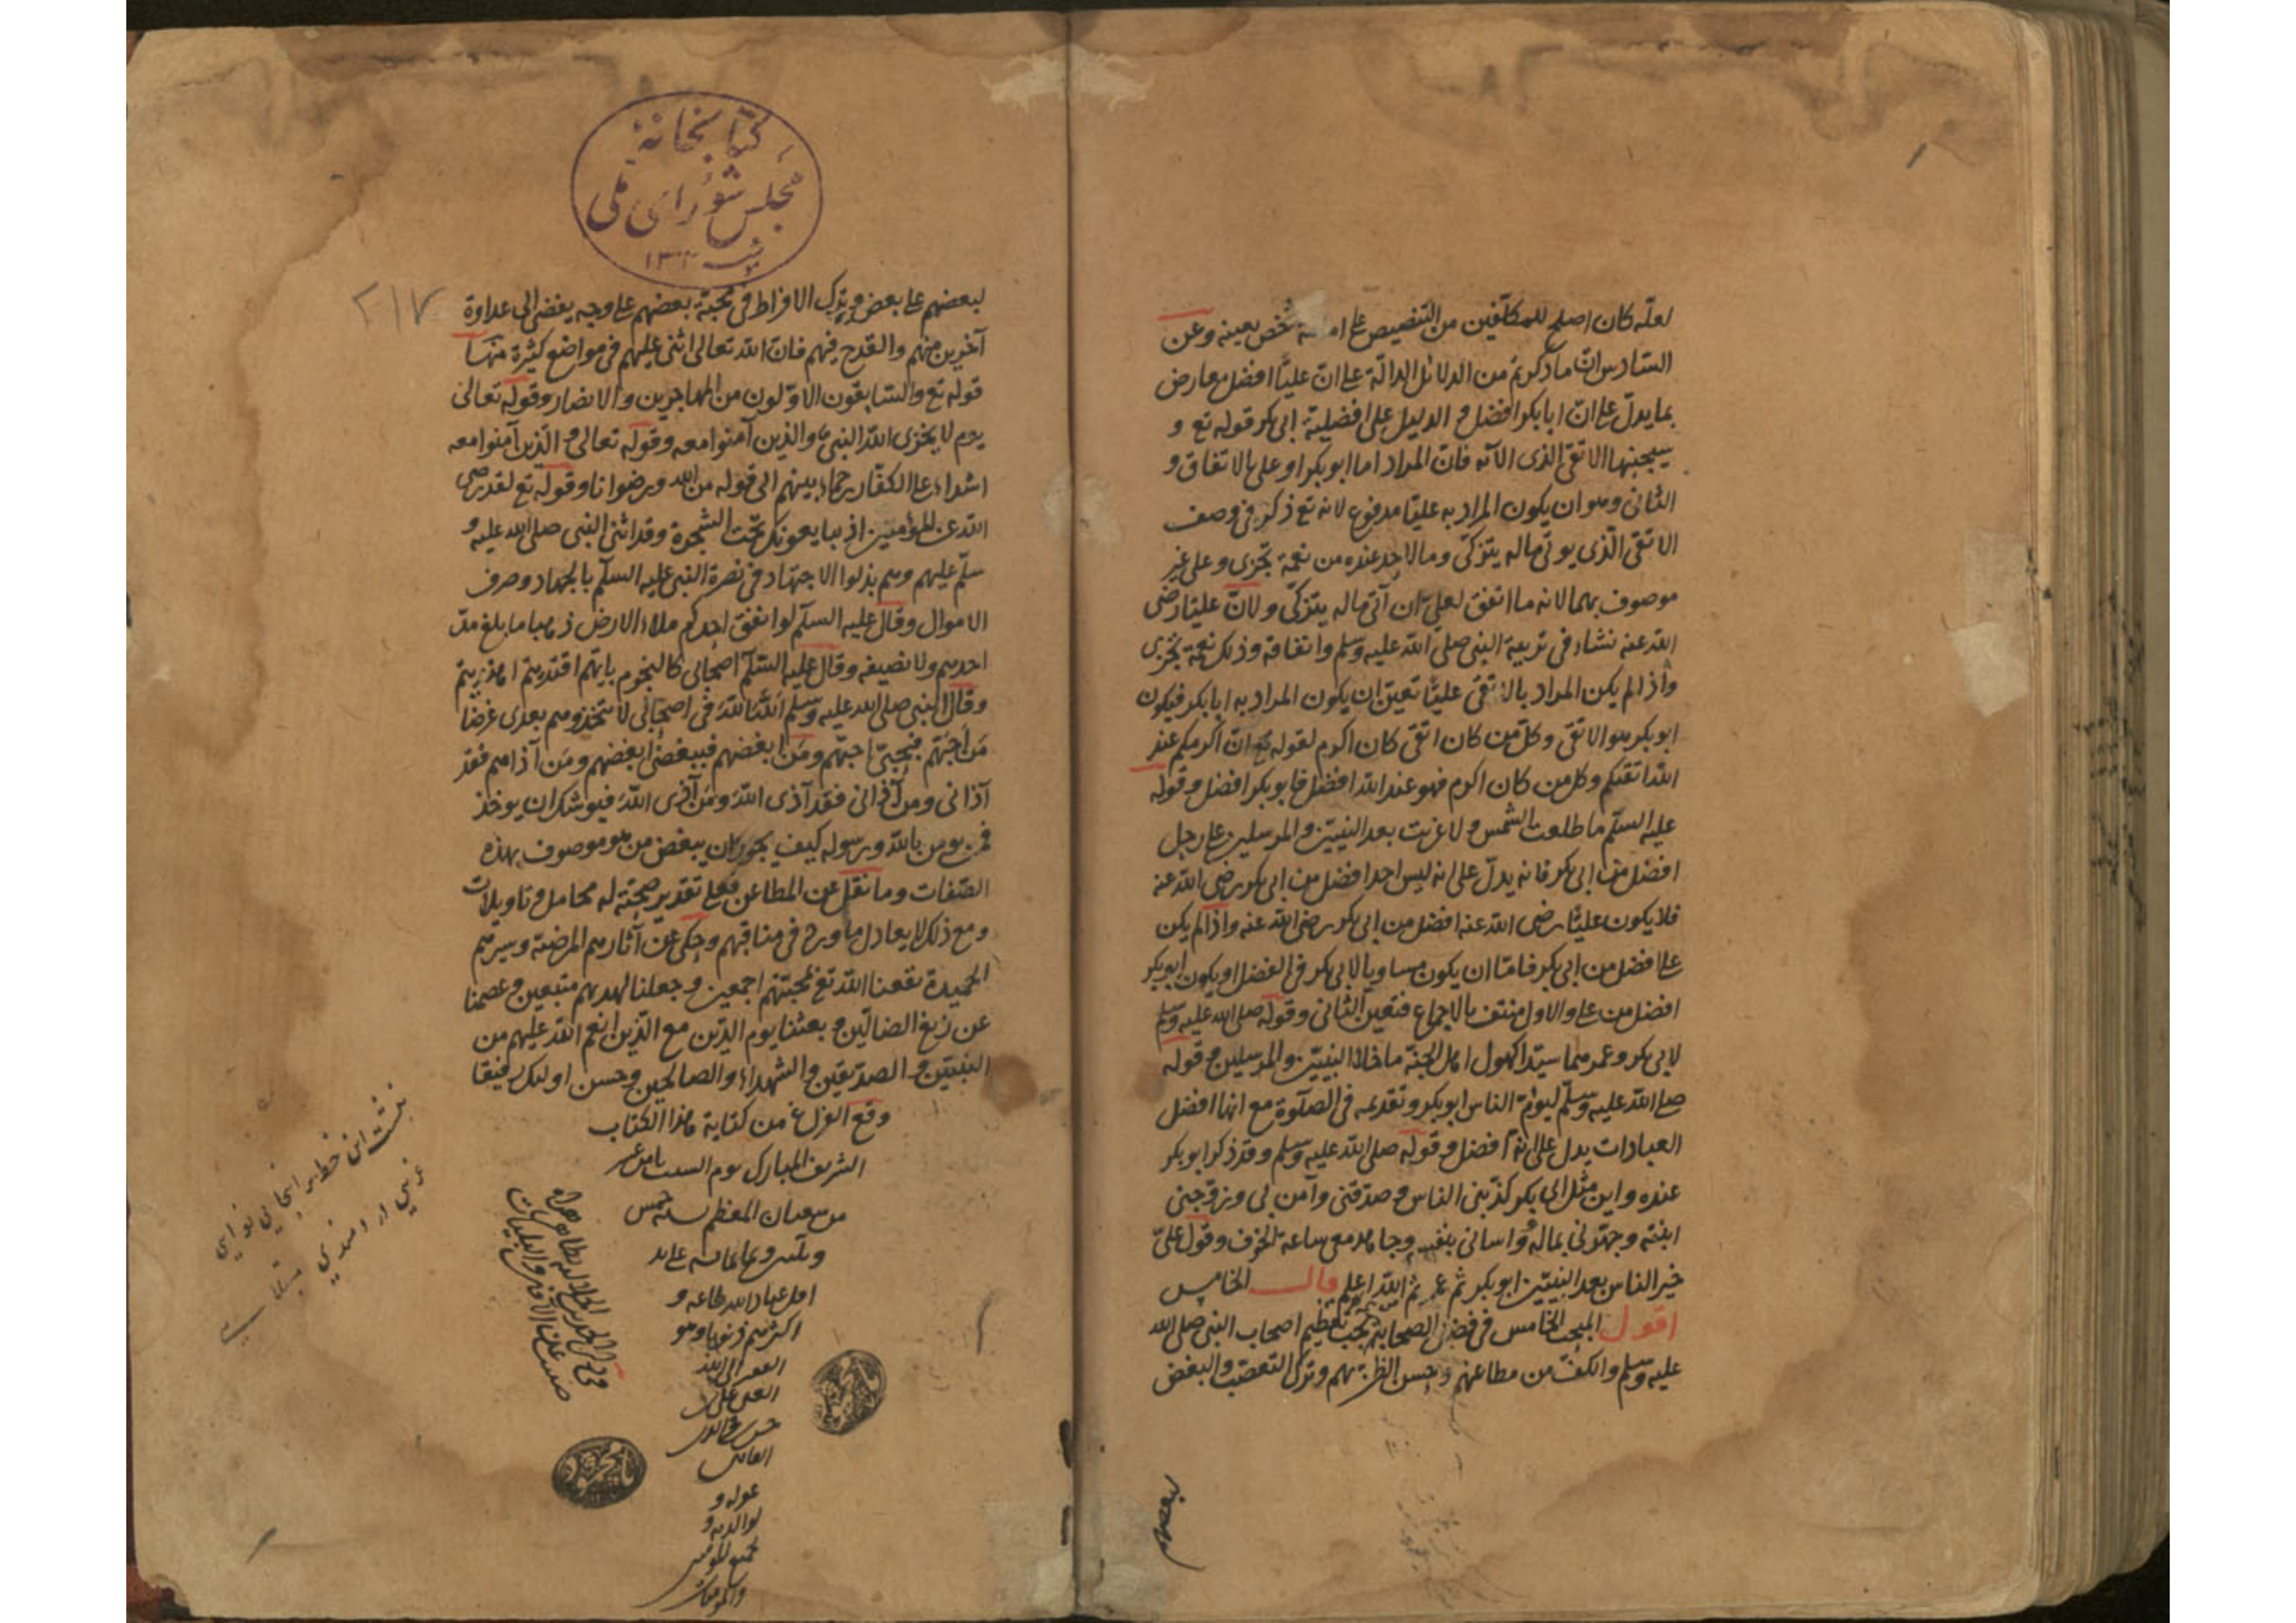 لعلّه كان اصلح للمكلّفين من التنصيص على امامة شخص بعينه وعن
السّادس انّ ما ذكرتم من الدلائل الدالّة على انّ عليّا افضل معارض
بما يدلّ على انّ ابا بكر افضل و الدليل على افضلية ابى بكر قوله تع و
سيجنبها الاتقى الذى الآيه فانّ المراد اما ابو بكر او على بالاتفاق و
الثانى وهو ان يكون المراد به عليّا مدفوع لانه تع ذكر فى وصف
الاتقى الّذى يوتى ماله يتزكّى وما لاحد عنده من نعمة تجزى و على غير
موصوف بهما لانه ما اتفق لعلىّ ان آتى ماله يتزكّى ولانّ عليّا رضى
الله عنه نشاء فى تربية النبى صلى الله عليه وسلم وانفاقه وذلك نعمة تجزى
واذا لم يكن المراد بالاتقى عليّا تعين ان يكون المراد به ابا بكر فيكون
ابو بكر هو الاتقى وكل من كان اتقى كان اكرم لقوله تع انّ اكرمكم عند
الله اتقيكم وكل من كان اكرم فهو عند الله افضل فابو بكر افضل وقوله
عليه السلم ما طلعت الشمس ولا غربت بعد النبيّين والمرسلين على رجل
افضل من ابى بكر فانه يدلّ على انه ليس احد افضل من ابى بكر رضى الله عنه
فلا يكون علىّ رضى الله عنه افضل من ابى بكر رضى الله عنه واذا لم يكن
على افضل من ابى بكر فامّا ان يكون مساويا لابى بكر فى الفضل او يكون ابو بكر
افضل من على والاول منتف بالاجماع فتعين الثانى وقوله صلى الله عليه وسلم
لابى بكر وعمر هما سيّدا كهول اهل الجنة ما خلا النبيّين والمرسلين وقوله
صلى الله عليه وسلّم ليؤمّ الناس ابو بكر وتقديمه فى الصلوة مع انها افضل
العبادات يدل على انه افضل وقوله صلى الله عليه وسلم وقد ذكر ابو بكر
عنده واين مثل ابى بكر كذّبنى الناس وصدّقنى وآمن بى وزوّجنى
ابنته وجهّزنى بماله وواسانى بنفسه وجاهد معى ساعة الخوف وقول علىّ
خير الناس بعد النبيّين ابو بكر ثم عمر ثم الله اعلم قال الخامس
اقول المبحث الخامس فى فضل الصحابة يجب تعظيم اصحاب النبى صلى الله
عليه وسلم والكفّ من مطاعنهم وحسن الظن بهم وترك التعصّب والبغض
لبعضهم
كتابخانهٔ
مجلس شوراى ملى
٢١٧
لبعضهم على بعض وترك الافراط فى محبّة بعضهم على وجه يفضى الى عداوة
آخرين منهم والقدح فيهم فانّ الله تعالى اثنى عليهم فى مواضع كثيرة منها
قوله تع والسّابقون الاوّلون من المهاجرين والانصار وقوله تعالى
يوم لا يخزى الله النبى والذين آمنوا معه وقوله تعالى والّذين آمنوا معه
اشداء على الكفّار رحماء بينهم الى قوله من الله ورضوانا وقوله تع لقد رضى
الله عن المؤمنين اذ يبايعونك تحت الشجرة وقد اثنى النبى صلى الله عليه و
سلّم عليهم وهم بذلوا الاجتهاد فى نصرة النبى عليه السلم بالجهاد وصرف
الاموال وقال عليه السلم لو انفق احدكم ملاء الارض ذهبا ما بلغ مدّ
احدهم ولا نصيفه وقال عليه السّلم اصحابى كالنجوم بايّهم اقتديتم اهتديتم
وقال النبى صلى الله عليه وسلم اللهَ اللهَ فى اصحابى لا تتخذوهم بعدى غرضا
مَن احبّهم فبحبّى احبّهم ومَن ابغضهم فببغضى ابغضهم ومَن آذاهم فقد
آذانى ومن آذانى فقد آذى الله ومَن آذى الله فيوشك ان يوخذ
فمن يومن بالله ورسوله كيف يجوز ان يبغض من هو موصوف بهذه
الصّفات وما نقل عن المطاعن فعلى تقدير صحّته له محامل وتاويلات
ومع ذلك لا يعادل ما ورد فى مناقبهم وحكى عن آثارهم المرضية وسيرهم
الحميدة نفعنا الله تع بمحبّتهم اجمعين وجعلنا لهديهم متبعين وعصمنا
عن زيغ الضالّين وبعثنا يوم الدّين مع الّذين انعم الله عليهم من
النبيّين والصدّيقين والشهداء والصالحين وحسن اولئك رفيقا
وقع الفراغ من كتابة هذا الكتاب
الشريف المبارك يوم السبت ثامن عشر
من شعبان المعظم سنه خمس
وثلثين وثمانمائه على يد
اقل عباد الله طاعة و
اكثرهم ذنوبا وهو
الفقير الى الله
الغنى على بن